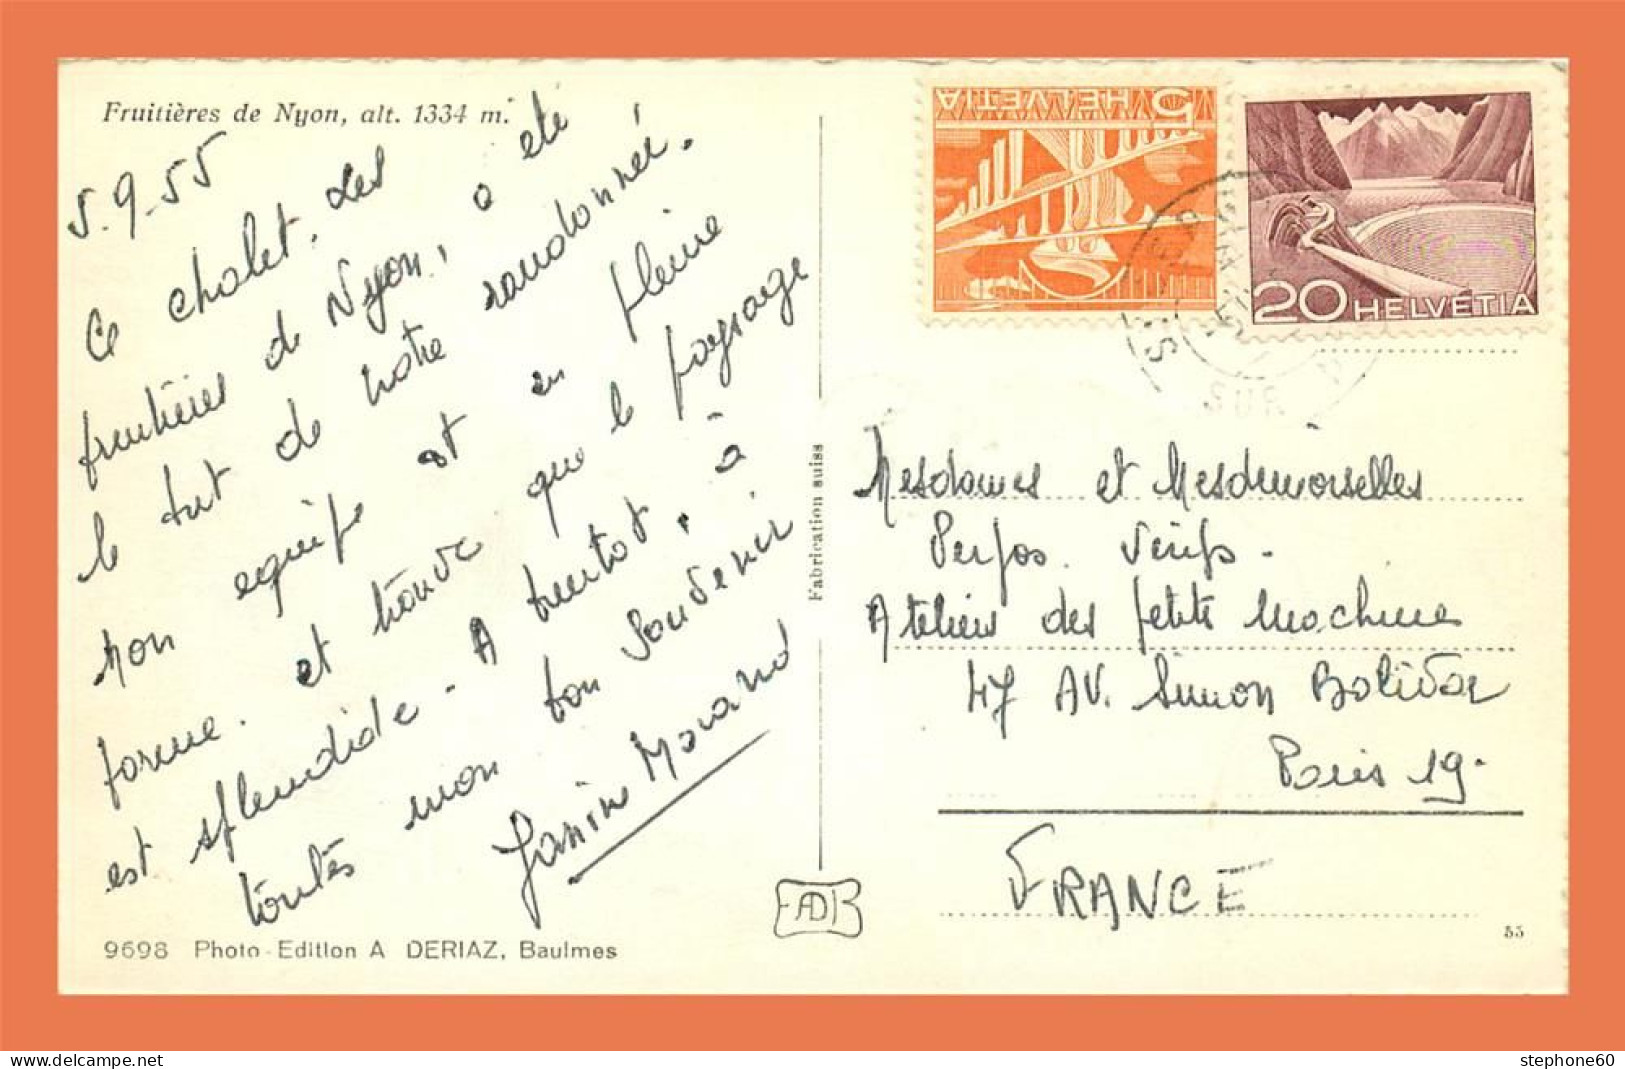 Fruitières de Nyon, alt. 1334 m.
5.9.55
Ce chalet. Les
fruitières de Nyon, a été
le but de notre randonnée.
Mon equipe est en pleine
forme. et trouve que le paysage
est splendide - A bientot, à
toutes mon bon Souvenir
Janine Morand
9698 Photo-Edition A DERIAZ, Baulmes
Fabrication suiss
5 HELVETIA
20 HELVETIA
SUR
Mesdames et Mesdemoiselles
Perfos. Verifs.
Atelier des petite Machine
47 AV. Simon Bolivar
Paris 19.
FRANCE
55
stephone60